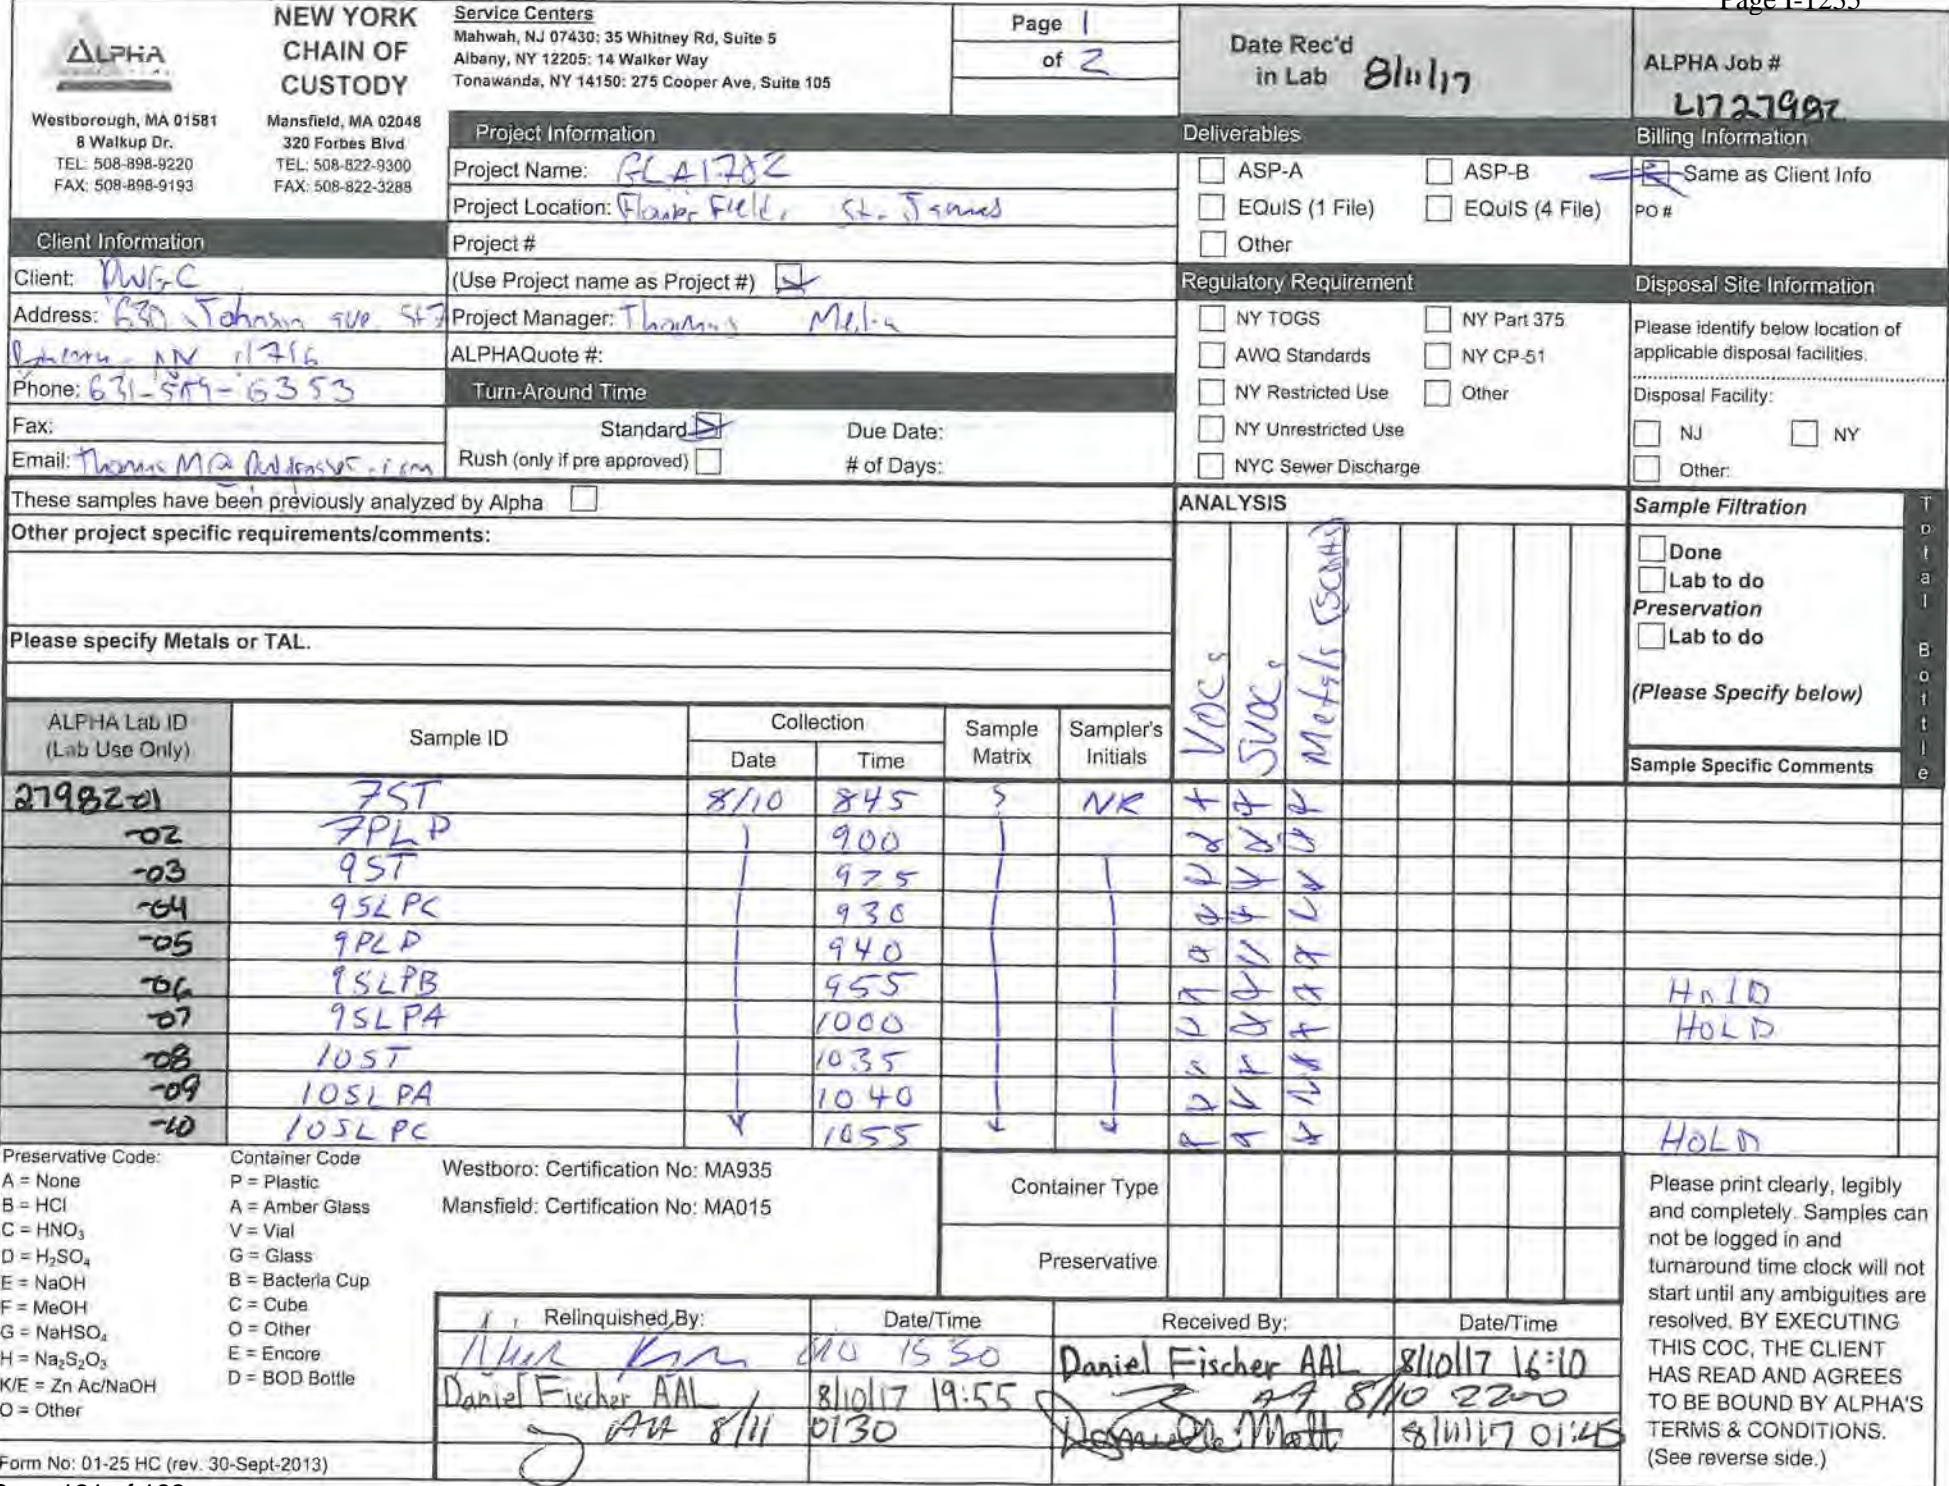 Page I-1255
ALPHA
NEW YORK
CHAIN OF
CUSTODY
Westborough, MA 01581
8 Walkup Dr.
TEL: 508-898-9220
FAX: 508-898-9193
Mansfield, MA 02048
320 Forbes Blvd
TEL: 508-822-9300
FAX: 508-822-3288
Service Centers
Mahwah, NJ 07430: 35 Whitney Rd, Suite 5
Albany, NY 12205: 14 Walker Way
Tonawanda, NY 14150: 275 Cooper Ave, Suite 105
Page 1
of 2
Date Rec'd
in Lab 8/11/17
ALPHA Job #
L1727982
Project Information
Project Name: FLA1702
Project Location: Field, St. James
Project #
(Use Project name as Project #)
Project Manager: Thomas Melia
ALPHAQuote #:
Deliverables
ASP-A ASP-B
EQuIS (1 File) EQuIS (4 File)
Other
Billing Information
Same as Client Info
PO #
Client Information
Client: PWGC
Address: 630 Johnson ave St 7
NY 11716
Phone: 631-589-6353
Fax:
Email:
Turn-Around Time
Standard Due Date:
Rush (only if pre approved) # of Days:
Regulatory Requirement
NY TOGS NY Part 375
AWQ Standards NY CP-51
NY Restricted Use Other
NY Unrestricted Use
NYC Sewer Discharge
Disposal Site Information
Please identify below location of
applicable disposal facilities.
Disposal Facility:
NJ NY
Other:
These samples have been previously analyzed by Alpha
Other project specific requirements/comments:
Please specify Metals or TAL.
ANALYSIS
VOCs
SVOCs
Metals (SCDHS)
Sample Filtration
Done
Lab to do
Preservation
Lab to do
(Please Specify below)
Sample Specific Comments
Total Bottle
ALPHA Lab ID
(Lab Use Only)
Sample ID
Collection
Date Time
Sample
Matrix
Sampler's
Initials
27982-01 7ST 8/10 845 S NR
-02 7PLP 900
-03 9ST 925
-04 9SLPC 930
-05 9PLP 940
-06 9SLPB 955 HOLD
-07 9SLPA 1000 HOLD
-08 10ST 1035
-09 10SLPA 1040
-10 10SLPC 1055 HOLD
Preservative Code:
A = None
B = HCl
C = HNO₃
D = H₂SO₄
E = NaOH
F = MeOH
G = NaHSO₄
H = Na₂S₂O₃
K/E = Zn Ac/NaOH
O = Other
Container Code
P = Plastic
A = Amber Glass
V = Vial
G = Glass
B = Bacteria Cup
C = Cube
O = Other
E = Encore
D = BOD Bottle
Westboro: Certification No: MA935
Mansfield: Certification No: MA015
Container Type
Preservative
Relinquished By: Date/Time Received By: Date/Time
15 50 Daniel Fischer AAL 8/10/17 16:10
Daniel Fischer AAL 8/10/17 19:55 8/10 2200
8/11 0130 8/11/17 01:45
Please print clearly, legibly
and completely. Samples can
not be logged in and
turnaround time clock will not
start until any ambiguities are
resolved. BY EXECUTING
THIS COC, THE CLIENT
HAS READ AND AGREES
TO BE BOUND BY ALPHA'S
TERMS & CONDITIONS.
(See reverse side.)
Form No: 01-25 HC (rev. 30-Sept-2013)